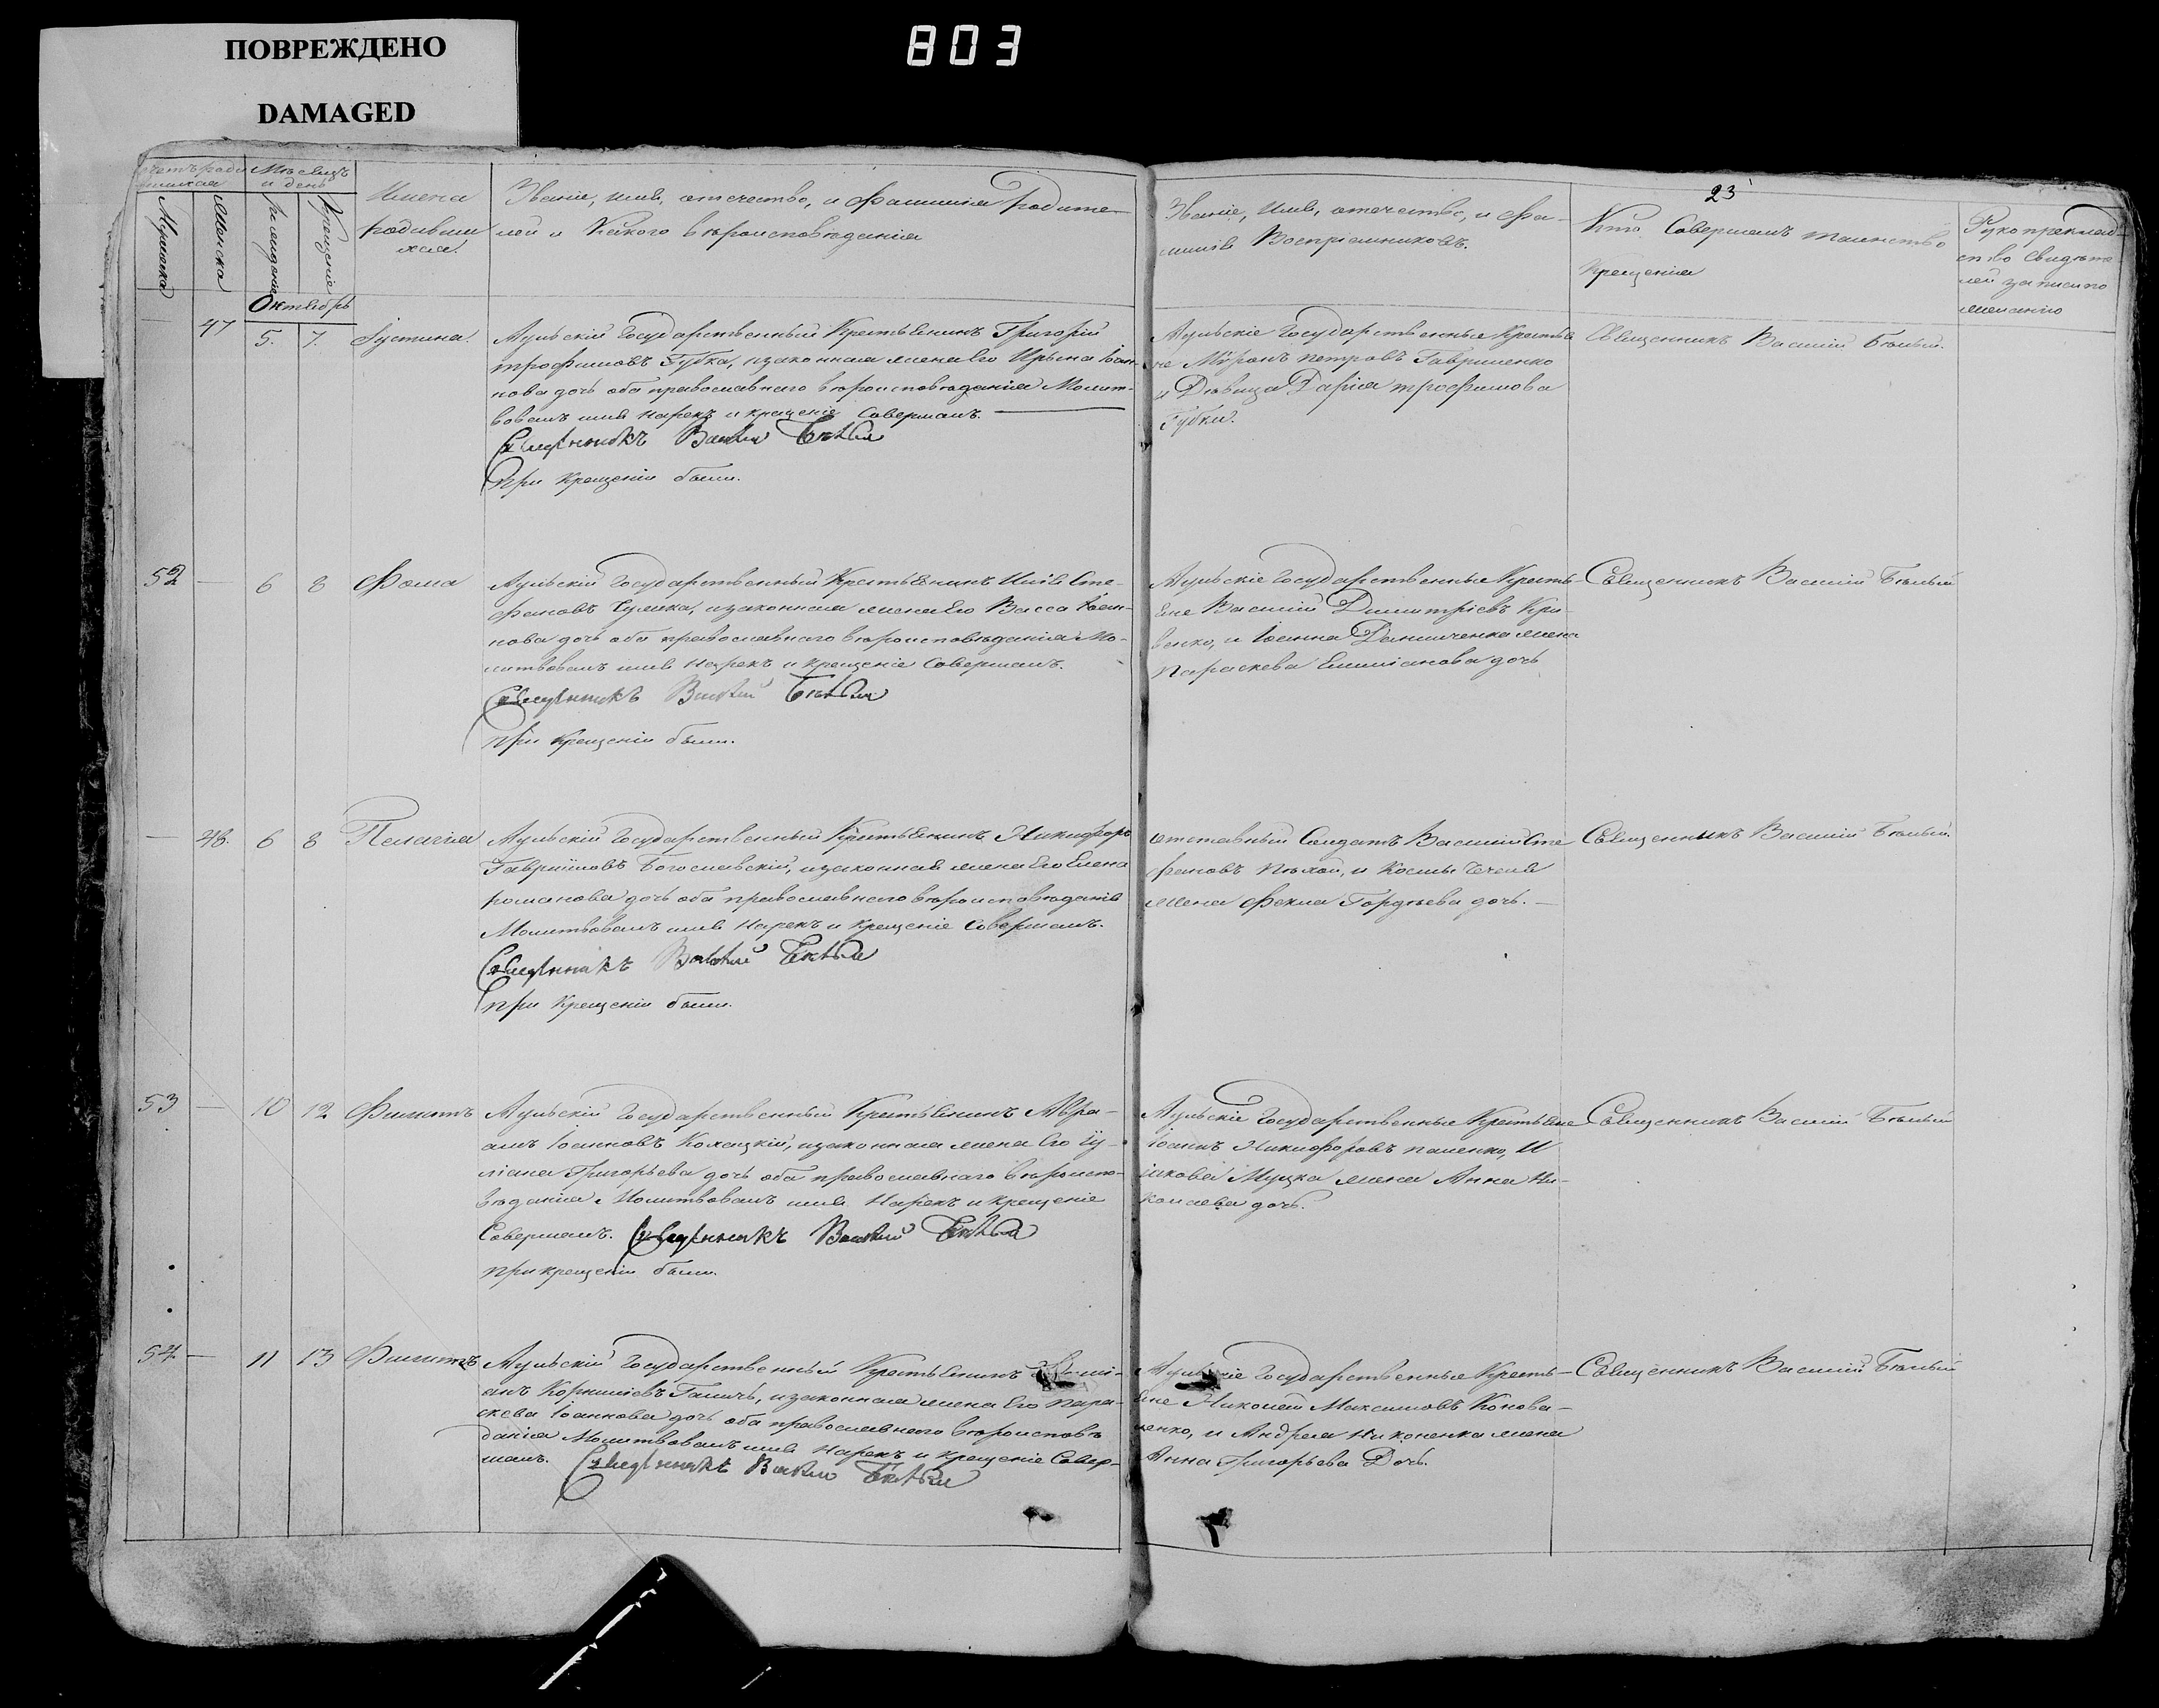 ПОВРЕЖДЕНО
DAMAGED
803
23
Мѣсяцъ
и день
Имена
родивши
хся.
Званіе, имя, отечество, и фамилія родите-
лей и Какого вѣроисповѣданія
Званіе, Имя, отечество, и фа-
милія Воспріемниковъ.
Кто Совершалъ таинство
Крещенія
Рукоприклад-
ство Свидѣте
лей записи по
желанію
Мужеска
Женска
рожденія
Крещенія
Октябрь
47
5.
7.
Іустина.
Аульскій Государственный Крестьянинъ Григорій
трофимовъ Губка, изаконная жена Его Ирина Іоан-
нова дочь оба православнаго вѣроисповѣданія Молит-
вовалъ имя Нарекъ и крещеніе Совершалъ.
Священникъ Василий Бѣлый
При Крещеніи были.
Аульскіе Государственные Крестья
не Мѵронъ петровъ Гавриленко
и Дѣвица Дарія трофимова
Губки.
Священникъ Василій Бѣлый.
52
—
6
8
Фома
Аульскій Государственный Крестьянинъ Илія Сте-
фановъ изаконная жена Его Васса Іоан-
нова дочь оба православнаго вѣроисповѣданія Мо-
литвовалъ имя Нарекъ и крещеніе Совершалъ.
Священникъ Василий Бѣлый
при Крещеніи были.
Аульскіе Государственные Кресть-
яне Василій Димитріевъ Кри-
венко, и Іоанна Данильченка жена
Параскева Емиліанова дочь
Священникъ Василій Бѣлый
—
48.
6
8
Пелагія
Аульскій Государственный Крестьянинъ Никифоръ
Гавриіловъ Богославскій, изаконная жена Его Елена
романова дочь оба православнаго вѣроисповѣданія
Молитвовалъ имя Нарекъ и крещеніе Совершалъ.
Священникъ Василий Бѣлый
при Крещеніи были.
отставный Солдатъ Василій Сте
фановъ и Космы
жена Фекла Гордѣева дочь.—
Священникъ Василій Бѣлый.
53
—
10
12
Филиппъ
Аульскій Государственный Крестьянинъ Авра-
амъ Іоанновъ изаконная жена Его Іу-
ліана Григорьева дочь оба православнаго вѣроиспо-
вѣданія Молитвовалъ имя Нарекъ и крещеніе
Совершалъ. Священникъ Василий Бѣлый
при крещеніи были.
Аульскіе Государственные Крестьяне
Іоаннъ Никифоровъ паленко, И
Іакова Муцка жена Анна Ни-
колаева дочь.
Священникъ Василій Бѣлый
54
—
11
13
Филиппъ
Аульскій Государственный Крестьянинъ
анъ Корниліевъ Галичь, изаконная жена Его пара-
скева Іоаннова дочь оба православнаго вѣроисповѣ
данія Молитвовалъ имя Нарекъ и крещеніе Совер-
шалъ. Священникъ Василий Бѣлый
Аульскіе Государственные Кресть-
яне Николай Максимовъ Конова-
ленко, и Андрея Никоненка жена
Анна Григорьева Дочь.
Священникъ Василій Бѣлый